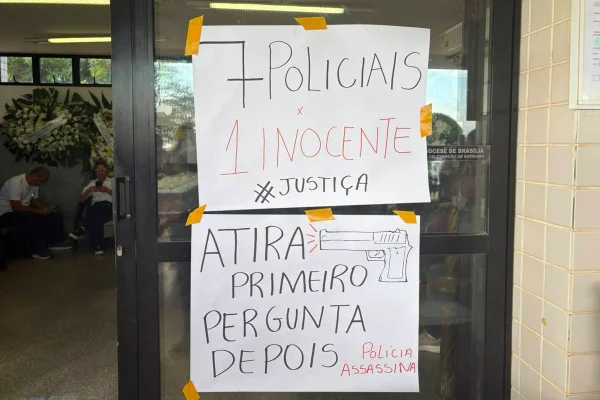 7 POLICIAIS
x
1 INOCENTE
#JUSTIÇA
OCESE DE BRASÍLIA
ATIRA
PRIMEIRO
PERGUNTA
DEPOIS
POLÍCIA
ASSASSINA